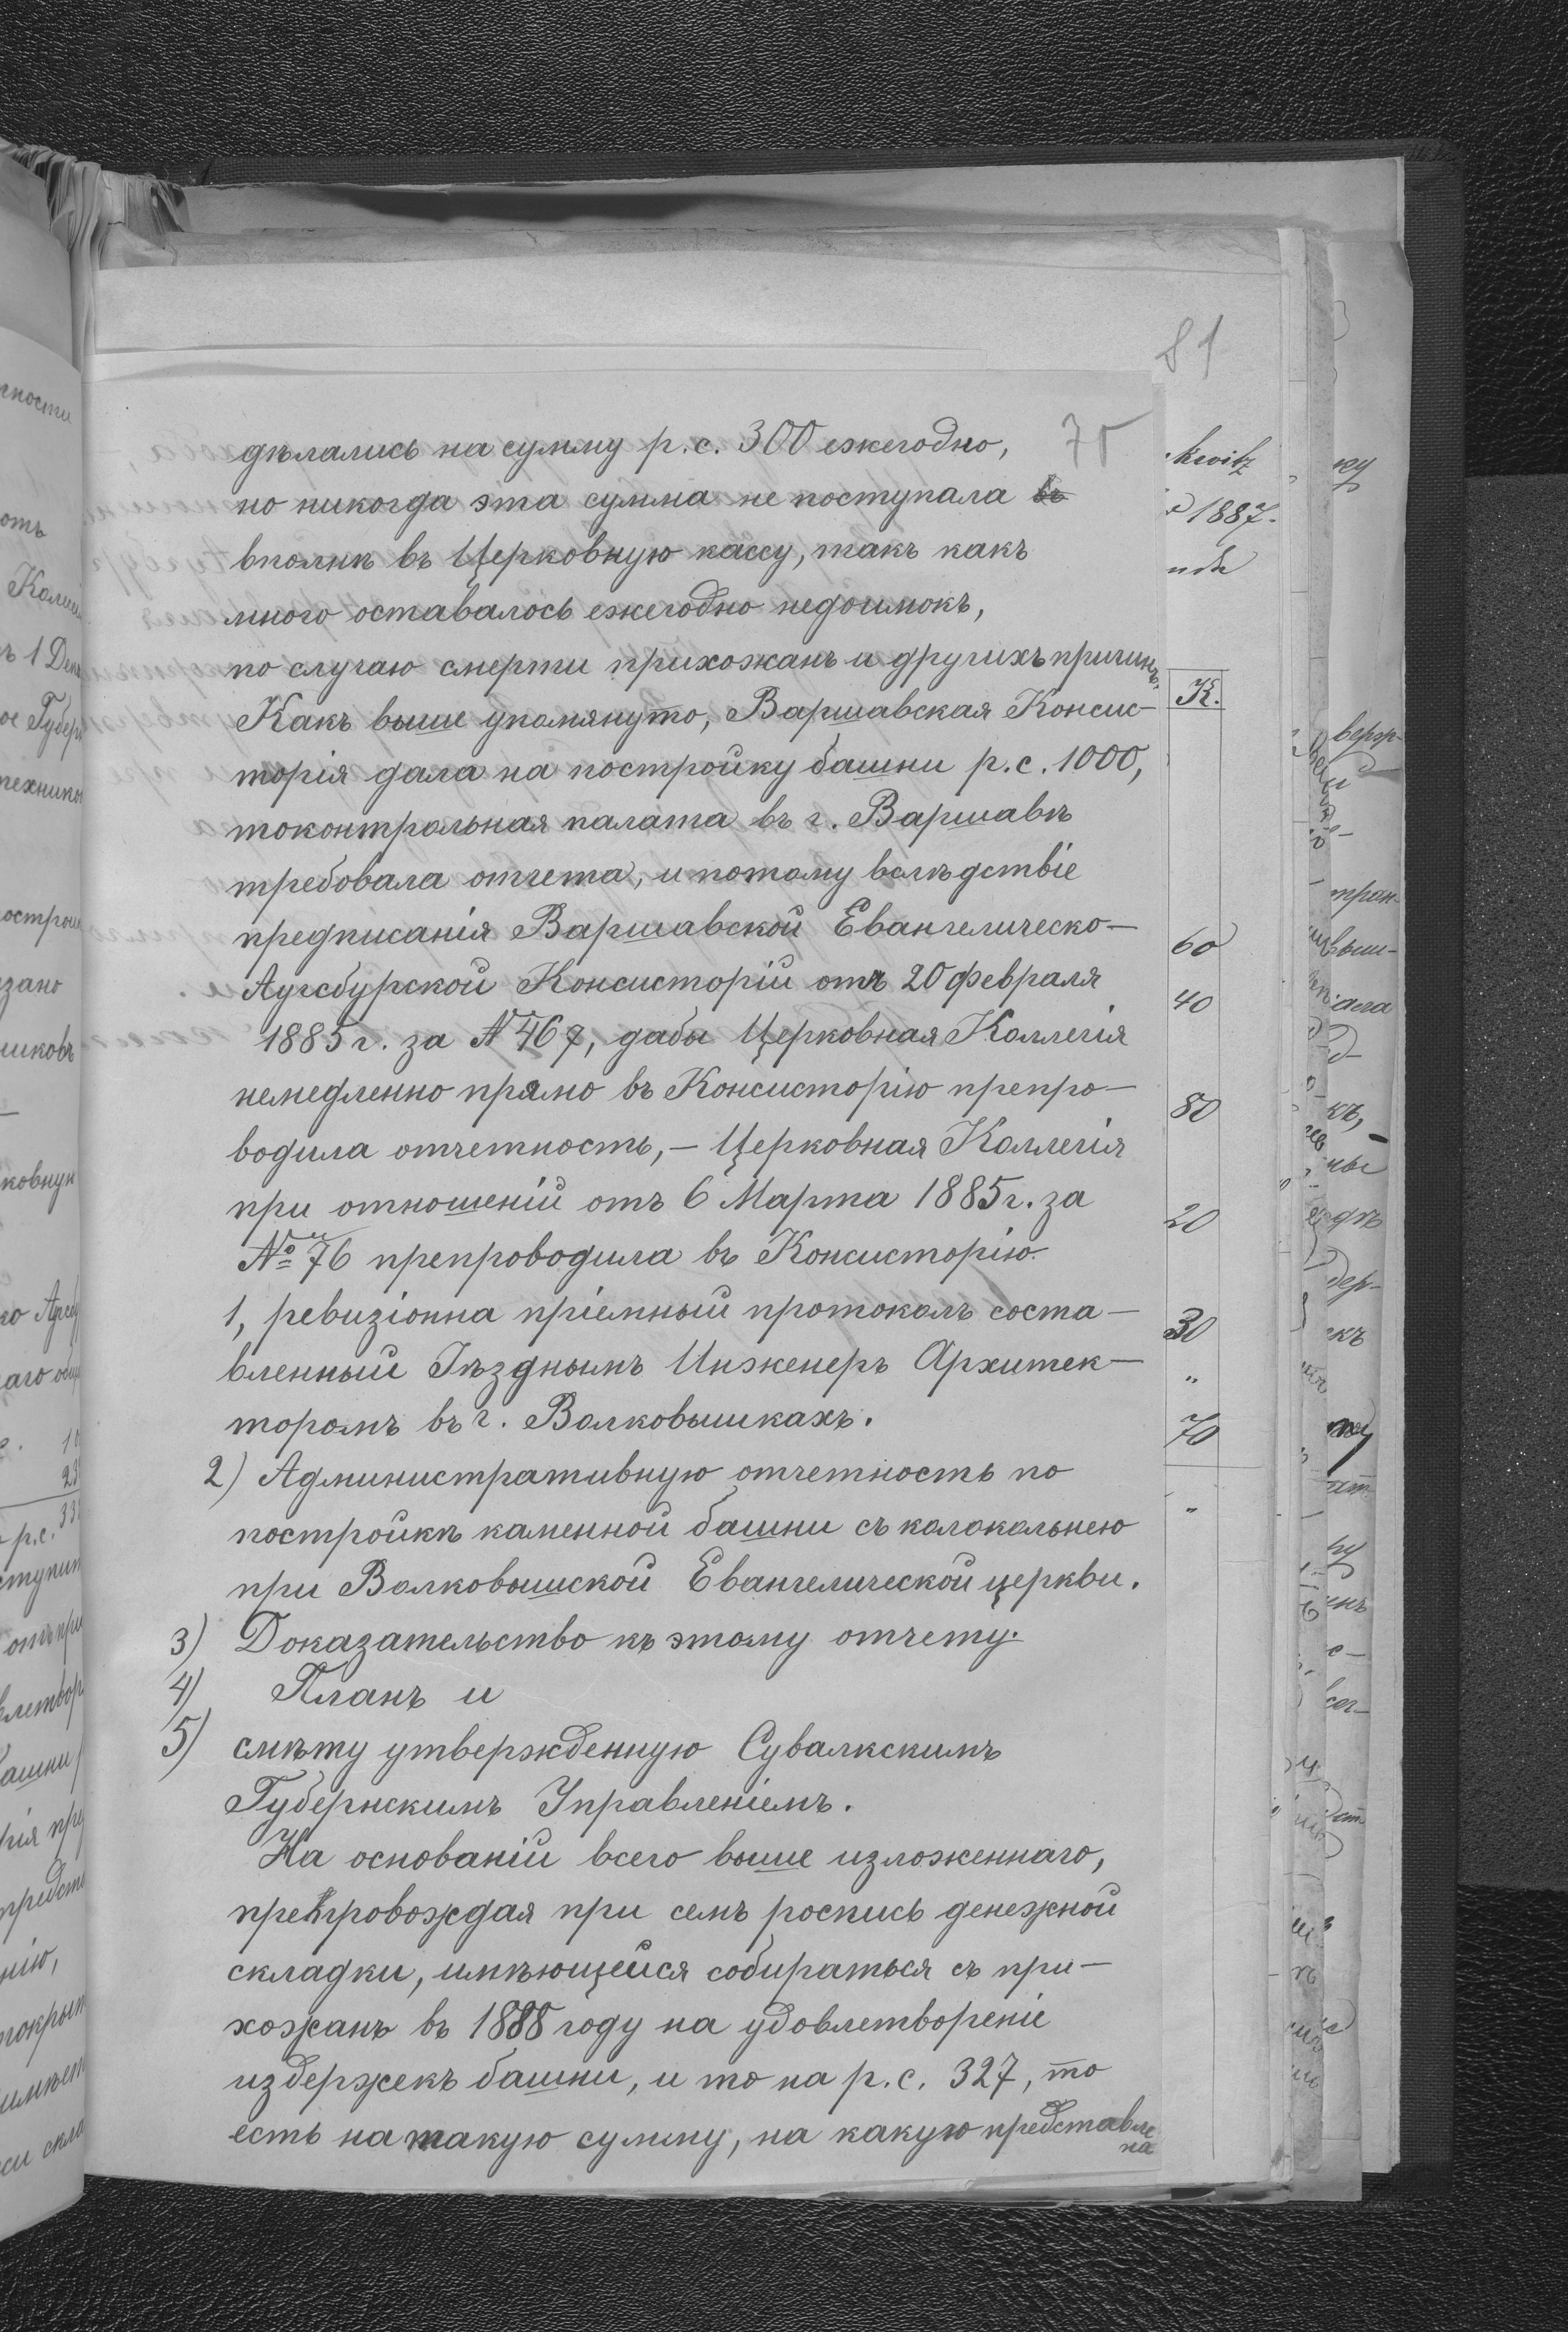 81
75
дѣлались на сумму р.с. 300 ежегодно,
но никогда эта сумма не поступала въ
вполнѣ въ Церковную кассу, такъ какъ
много оставалось ежегодно недоимокъ,
по случаю смерти прихожанъ и другихъ причинъ.
Какъ выше упомянуто, Варшавская Консис-
торія дала на постройку башни р.с. 1000,
токонтрольная палата въ г. Варшавѣ
требовала отчета, и потому вслѣдствіе
предписанія Варшавской Евангелическо-
Аугсбурской Консисторіи отъ 20 февраля
1885 г. за № 467, дабы Церковная Коллегія
немедленно прямо въ Консисторію препро-
водила отчетность, - Церковная Коллегія
при отношеніи отъ 6 Марта 1885 г. за
№ 76 препроводила въ Консисторію.
1, ревизіонна пріемный протоколъ соста-
вленный Уѣзднымъ Инженеръ Архитек-
торомъ въ г. Волковышкахъ.
2) Административную отчетность по
постройкѣ каменной башни съ колокольнею
при Волковышской Евангелической церкви.
3) Доказательство къ этому отчету.
4) Планъ и
5) смѣту утвержденную Сувалкскимъ
Губернскимъ Управленіемъ.
На основаніи всего выше изложеннаго,
препровождая при семъ роспись денежной
складки, имѣющейся собираться съ при-
хожанъ въ 1888 году на удовлетвореніе
издержекъ башни, и то на р.с. 327, то
есть на такую сумму, на какую представле
на
kwitz
1887.
K.
60
40
80
20
30
"
70
"